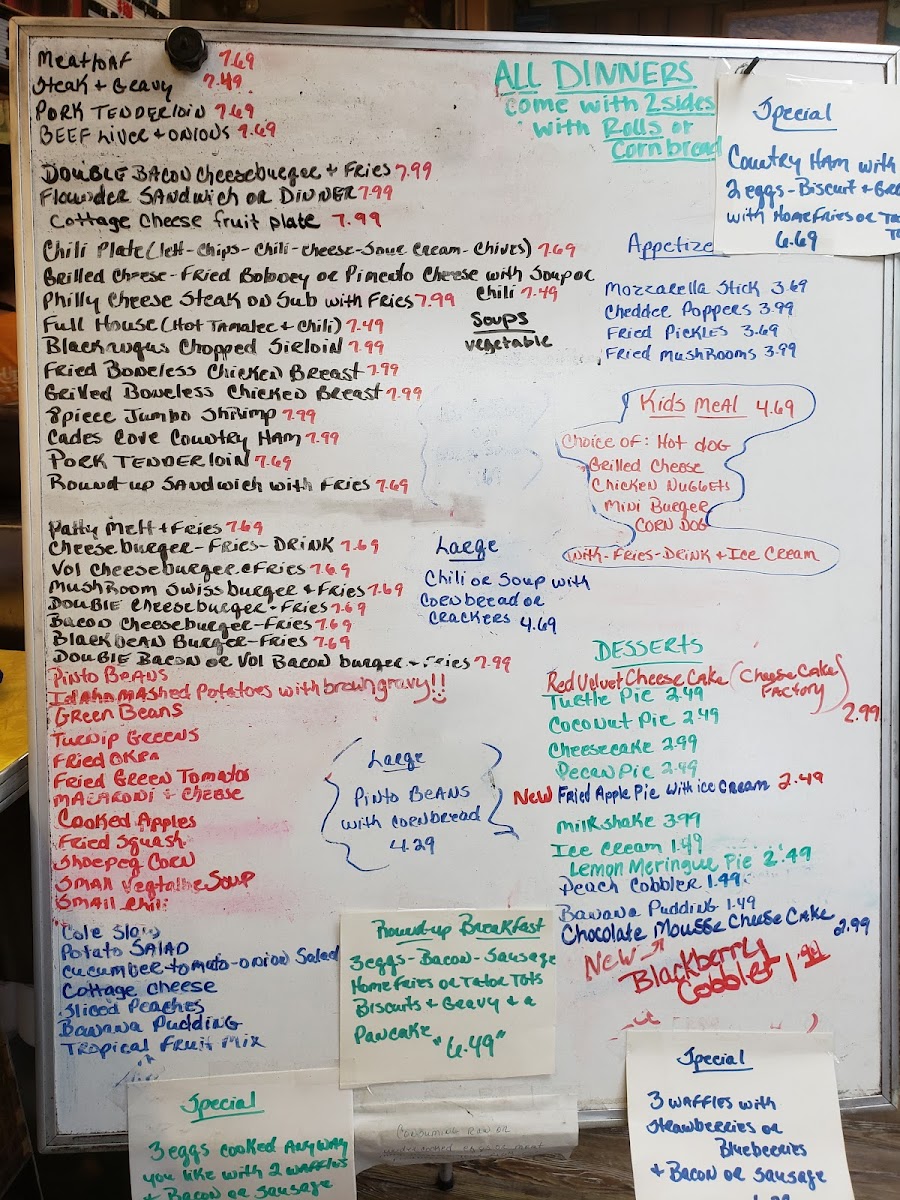 Meatloaf 7.69
Steak + Gravy 7.49
Pork Tenderloin 7.69
Beef Liver + Onions 7.69
Double Bacon Cheeseburger + Fries 7.99
Flounder Sandwich or Dinner 7.99
Cottage Cheese fruit plate 7.99
Chili Plate (lett-chips-chili-cheese-Sour cream-chives) 7.69
Grilled Cheese-Fried Boloney or Pimento Cheese with Soup or
Chili 7.49
Philly Cheese Steak on Sub with Fries 7.99
Full House (Hot Tamalee + Chili) 7.49
Blackangus Chopped Sirloin 7.99
Fried Boneless Chicken Breast 7.99
Grilled Boneless Chicken Breast 7.99
8piece Jumbo Shrimp 7.99
Cades Cove Country Ham 7.99
Pork Tenderloin 7.69
Round-up Sandwich with Fries 7.69
Patty Melt + Fries 7.69
Cheeseburger-Fries-Drink 7.69
Vol Cheeseburger + Fries 7.69
Mushroom Swissburger + Fries 7.69
Double Cheeseburger-Fries 7.69
Bacon Cheeseburger-Fries 7.69
Blackbean Burger-Fries 7.69
Double Bacon or Vol Bacon burger + Fries 7.99
Pinto Beans
Idaho mashed Potatoes with brown gravy!!
Green Beans
Turnip Greens
Fried Okra
Fried Green Tomato
Macaroni + Cheese
Cooked Apples
Fried Squash
Shoepeg Corn
Small Vegtable Soup
Small Chili
Cole Slaw
Potato Salad
Cucumber-tomato-onion Salad
Cottage Cheese
Sliced Peaches
Banana Pudding
Tropical Fruit Mix
Soups
vegetable
All Dinners
come with 2 sides
with Rolls or
Cornbread
Special
Country Ham with
2 eggs-Biscuit +
with Home Fries or
6.69
Mozzarella Stick 3.69
Chedder Poppers 3.99
Fried Pickles 3.69
Fried Mushrooms 3.99
Kids Meal 4.69
Choice of: Hot dog
Grilled Cheese
Chicken Nuggets
Mini Burger
Corn Dog
with-Fries-Drink + Ice Cream
Large
Chili or Soup with
cornbread or
crackers 4.69
Large
Pinto Beans
with cornbread
4.29
Desserts
Red Velvet Cheese Cake (Cheese Cake
Factory) 2.99
Turtle Pie 2.49
Coconut Pie 2.49
Cheesecake 2.99
Pecan Pie 2.49
New Fried Apple Pie with ice cream 2.49
Milkshake 3.99
Ice Cream 1.49
Lemon Meringue Pie 2.49
Peach Cobbler 1.49
Banana Pudding 1.49
Chocolate Mousse Cheese Cake 2.99
New
Blackberry
Cobbler
Round-up Breakfast
3 eggs-Bacon-Sausage
Home Fries or Tator Tots
Biscuits + Gravy + a
Pancake
"6.49"
Special
3 eggs cooked anyway
you like with 2 waffles
+ Bacon or Sausage
Consuming raw or
Special
3 waffles with
strawberries or
Blueberries
+ Bacon or Sausage